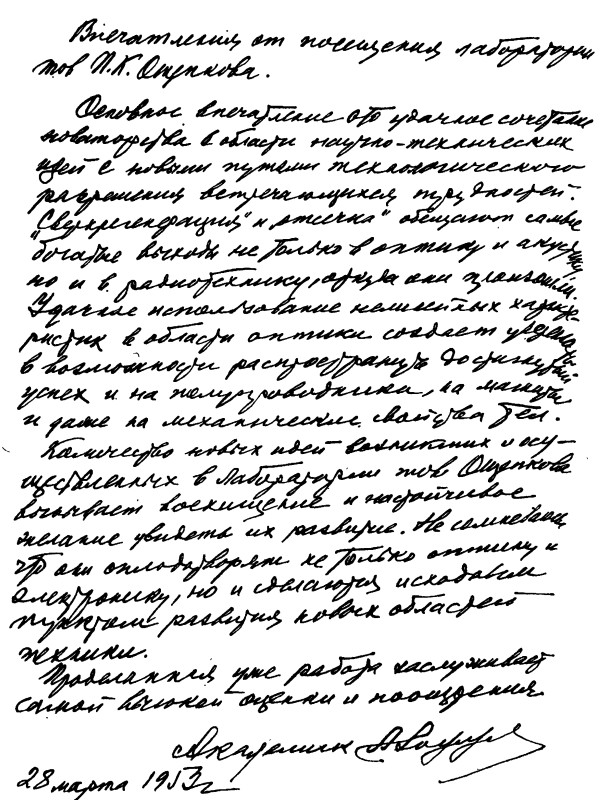 Впечатления от посещения лаборатории
тов П.К. Ощепкова.
Основное впечатление это удачное сочетание
новаторства в области научно-технических
идей с новыми путями технологического
разрешения встречающихся трудностей.
"Сверхрегенерация" и "отсечка" обещают самые
богатые выходы не только в оптику и акустику,
но и в радиотехнику, откуда они произошли.
Удачное использование нелинейных характе-
ристик в области оптики создает уверенность
в возможности распространить достигнутый
успех и на полупроводники, на магниты
и даже на механические свойства тел.
Количество новых идей возникших и осу-
ществленных в лаборатории тов Ощепкова
вызывает восхищение и настойчивое
желание увидеть их развитие. Не сомневаюсь,
что они оплодотворят не только оптику и
электронику, но и сделаются исходным
пунктом развития новых областей
техники.
Проделанная уже работа заслуживает
самой высокой оценки и поощрения
Академик
28 марта 1953 г